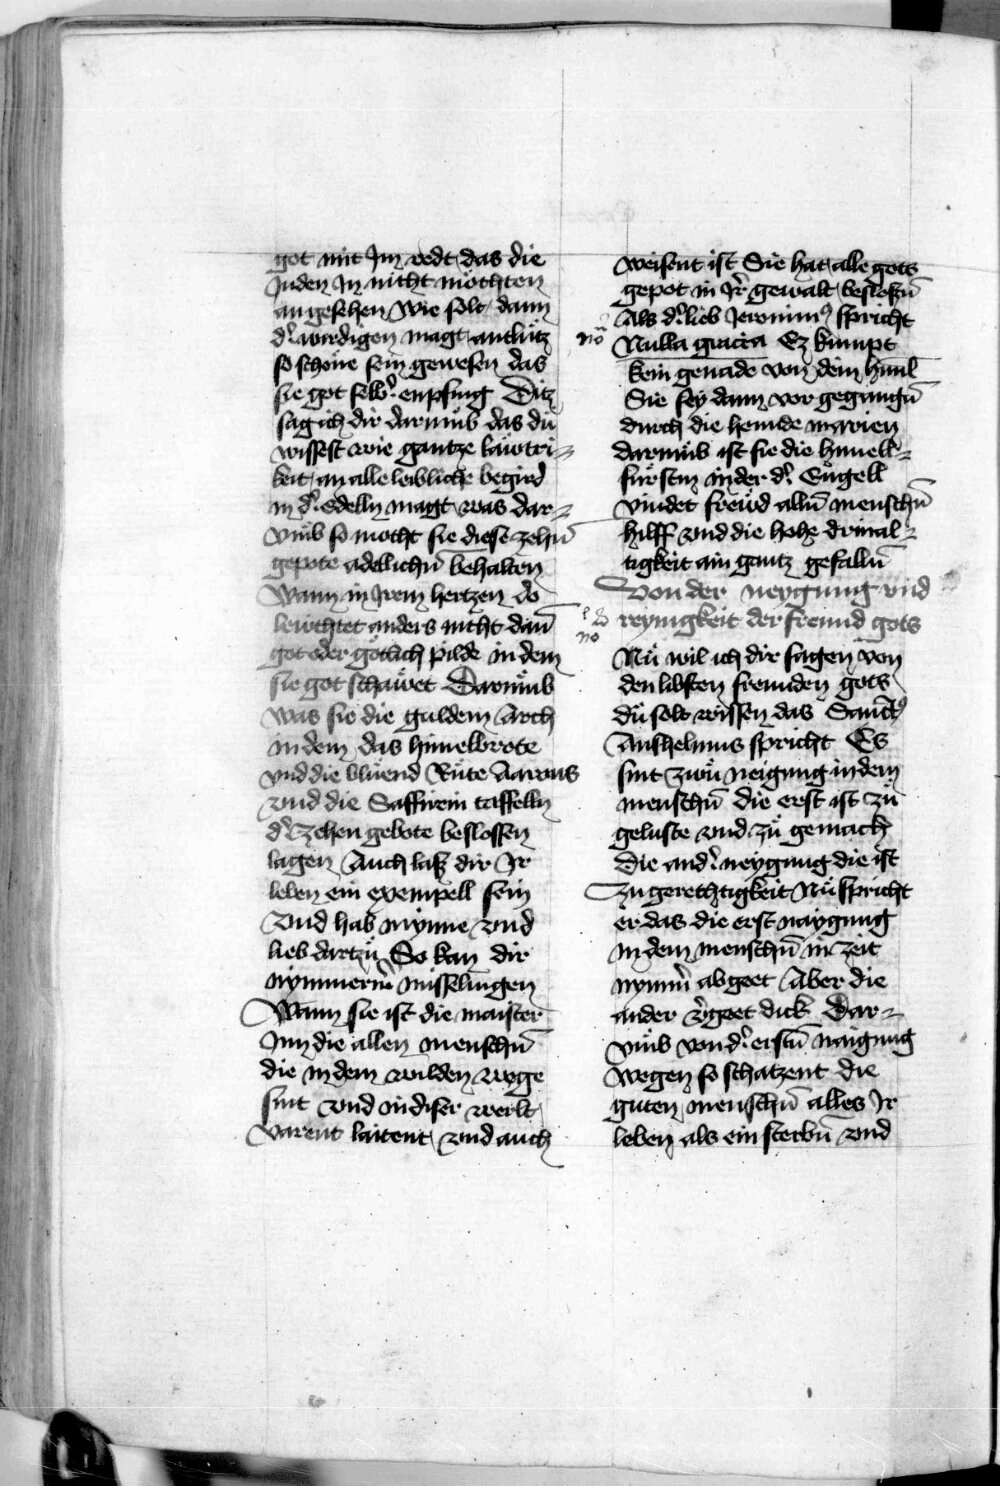 got mit Jm redt das die
Juden Jn nicht möchten
angesehen Wie solt dann
d' wirdigen magt antlütz
so schöne sein gewesen das
sie got selb' enpfing Ditz
sag ich dir darumb das du
wissest wie gantze lawtri-
keit an alle leibliche begird
in d' edelln magt was dar-
vmb so mocht sie diese zehn̄
gepote adellichn̄ behalten
Wann in Jrem hertzen do
lewchtet anders nicht dan̄
got oder götlich pilde in dem
sie got schawet Darumb
was sie die guldein Arch
in dem das himelbrote
vnd die blüend Rute Aarons
vnd die Saffirein taffelln
d' zehen gebote beslossen
lagen Auch laß dir Jr
leben ein exempell sein
Vnd hab mynne vnd
lieb dartzu So kan dir
nymmerm̄ misselingen
Wann sie ist die maister
Jnn die allen menschn̄
die in dem wilden wege
sint vnd in diser werlt
varent laitent vnd auch
weisent ist Sie hat alle gots
gepot in Jr' gewalt besloßn̄
Als d' lieb Jeronim9 spricht
no Nulla gracia Ez kumpt
kein genade von dem himl
Sie sey dann vor gegangn̄
durch die hennde marien
darumb ist sie die himell-
fürstin in der d' Engell
vindet frewd alln̄ menschn̄
hilff vnd die hohe drinal-
tigkeit ain gantz gefalln̄
Von der neygung vnd
reynigkeit der freund gots
no
Nu wil ich dir sagen von
den libsten freunden gots
du solt wissen das Sanct9
Anshelmus spricht Es
sint zwu neigung in dem
menschn̄ die erst ist zu
geluste vnd zu gemach
Die and' neygung die ist
Zu gerechtigkeit Nu spricht
er das die erst naygung
in dem menschn̄ in zeit
nymm̄ abgeet Aber die
ander v'geet dick Dar-
vmb von d' erstn̄ naigung
wegen so schatzent die
guten menschn̄ alles Jr
leben als ein sterbn̄ vnd